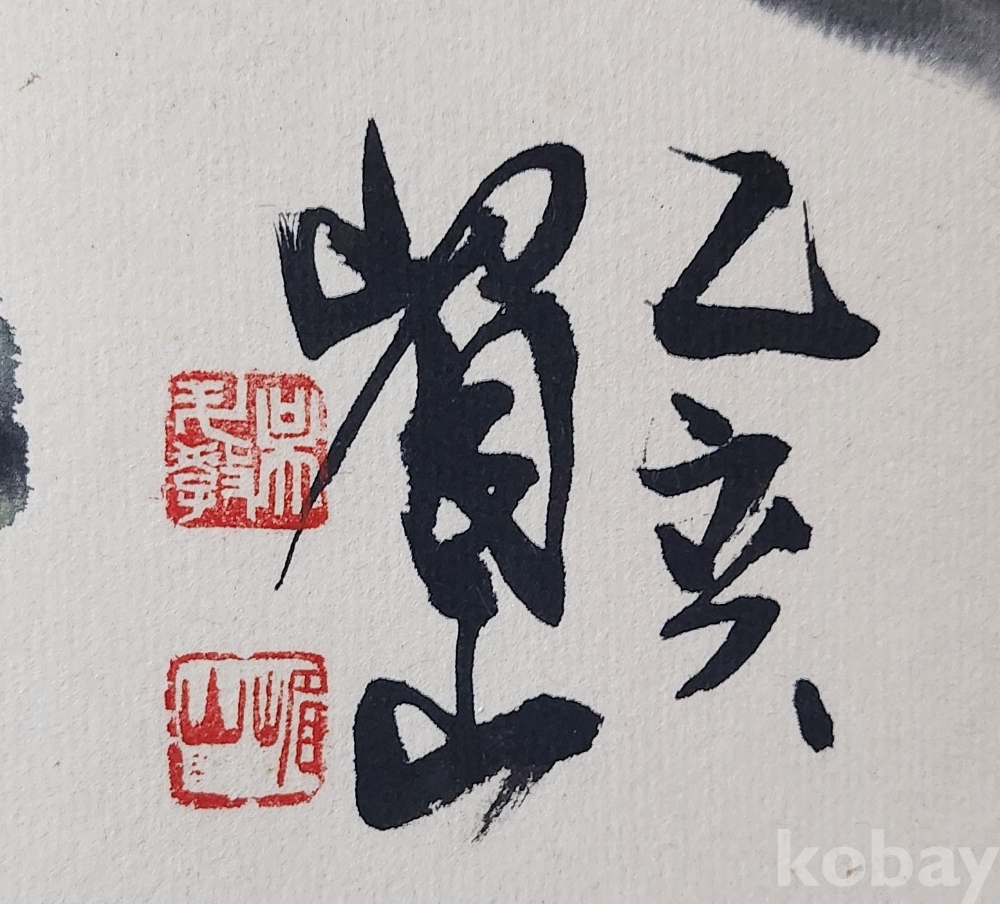 乙亥
嵋山
嵋山
kobay